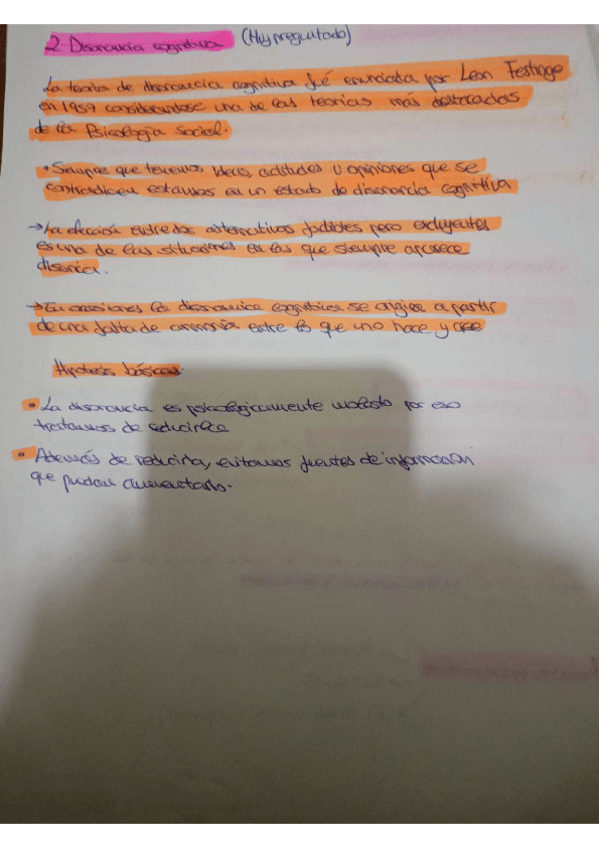 2. Disonancia cognitiva (Muy preguntado)
La teoría de disonancia cognitiva fué enunciada por Leon Festinge
en 1957 considerandose una de las teorias más destacadas
de la Psicología Social.
• Siempre que tenemos ideas, actitudes u opiniones que se
contradicen estamos en un estado de disonancia cognitiva
→ La elección entre dos alternativas factibles pero excluyentes
es una de las situaciones en las que siempre aparece
→ En ocasiones la disonancia cognitiva se origina a partir
de una falta de armonía entre lo que uno hace y cree
Hipótesis básicas
• La disonancia es psicológicamente molesta por eso
tratamos de reducirla
• Además de reducirla, evitamos fuentes de información
que puedan aumentarla.